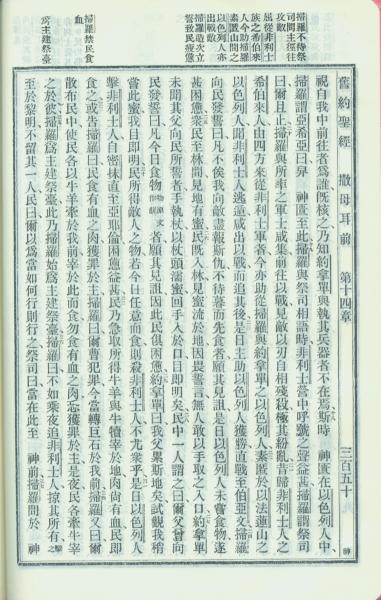 掃羅不待祭
司問主逕往
攻敵
屈從非利士
族之希伯來
人今助掃羅
素匿山間之
以色列人亦
出戰敵
掃羅造次立
誓致民疲憊
掃羅禁民食
血
爲主建祭臺
舊約聖經 撒母耳前 第十四章 三百五十 神
視自我中前往者爲誰旣核之乃知約拿單與執其兵器者不在焉斯時 神匱在以色列人中
掃羅謂亞希亞曰舁 神匱至此掃羅與祭司相語時非利士營中呼號之聲益甚掃羅謂祭司
曰爾且止掃羅與所率之軍士咸集前往以戰見敵以刃自相殘殺極其紛亂昔歸非利士人之
希伯來人由四方來從非利士軍者今亦助從掃羅與約拿單之以色列人素匿於以法蓮山之
以色列人聞非利士人逃遁咸出以戰而追其後是日主助以色列人獲勝直戰至伯亞文掃羅
向民發誓曰凡不俟我向敵盡報斯仇不待暮而先食者願其見詛是日以色列人未嘗食物遂
甚困憊衆民至林間見地有蜜民旣入林見蜜流於地因畏誓言無人敢以手取之入口約拿單
未聞其父向民所誓者手執杖以杖頭濡蜜回手入於口目卽明矣民中一人謂之曰爾父曾向
民發誓曰凡今日食物物原文作餅者願其見詛因此民俱困憊約拿單曰我父累斯地矣試觀我稍
嘗此蜜我目卽明民所得敵人之物若今日任意而食則殺非利士人不尤衆乎是日以色列人
擊非利士人自密抹直至亞耶倫困憊益甚民乃急取所得牛羊與牛犢宰於地肉尚有血民卽
食之或告掃羅曰民食有血之肉獲罪於主掃羅曰爾曹犯罪今當轉巨石於我前掃羅又曰爾
散布民中使民各以牛羊牽於我前宰於此而食勿食有血之肉恐獲罪於主是夜民各牽牛宰
之於彼掃羅爲主建祭臺此乃掃羅始爲主建祭臺掃羅曰不如乘夜追非利士人掠其所有擊之
至於黎明不留其一人民曰爾以爲當如何行則行之祭司曰當在此至 神前掃羅問於 神